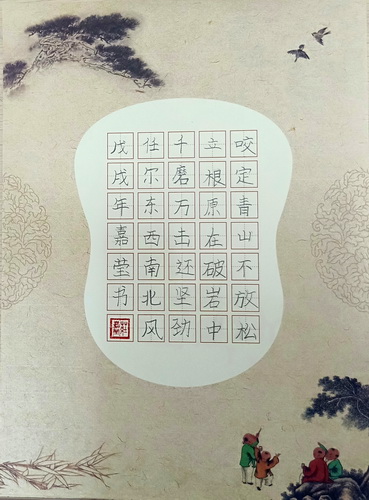 咬定青山不放松
立根原在破岩中
千磨万击还坚劲
任尔东西南北风
戊戌年嘉莹书